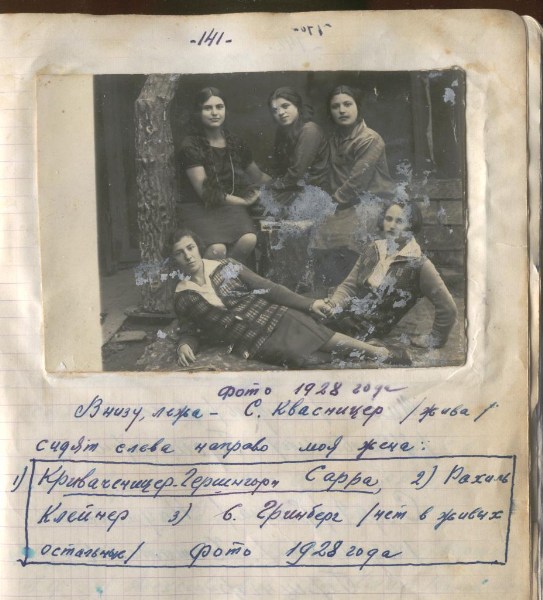 -141-
Фото 1928 года
Внизу, лежа - С. Квасницер /жива/
сидят слева направо моя жена:
1) Кривачсницер-Гершингорн Сарра, 2) Рахиль
Клейнер 3) б. Гринберг /нет в живых
остальных/ Фото 1928 года